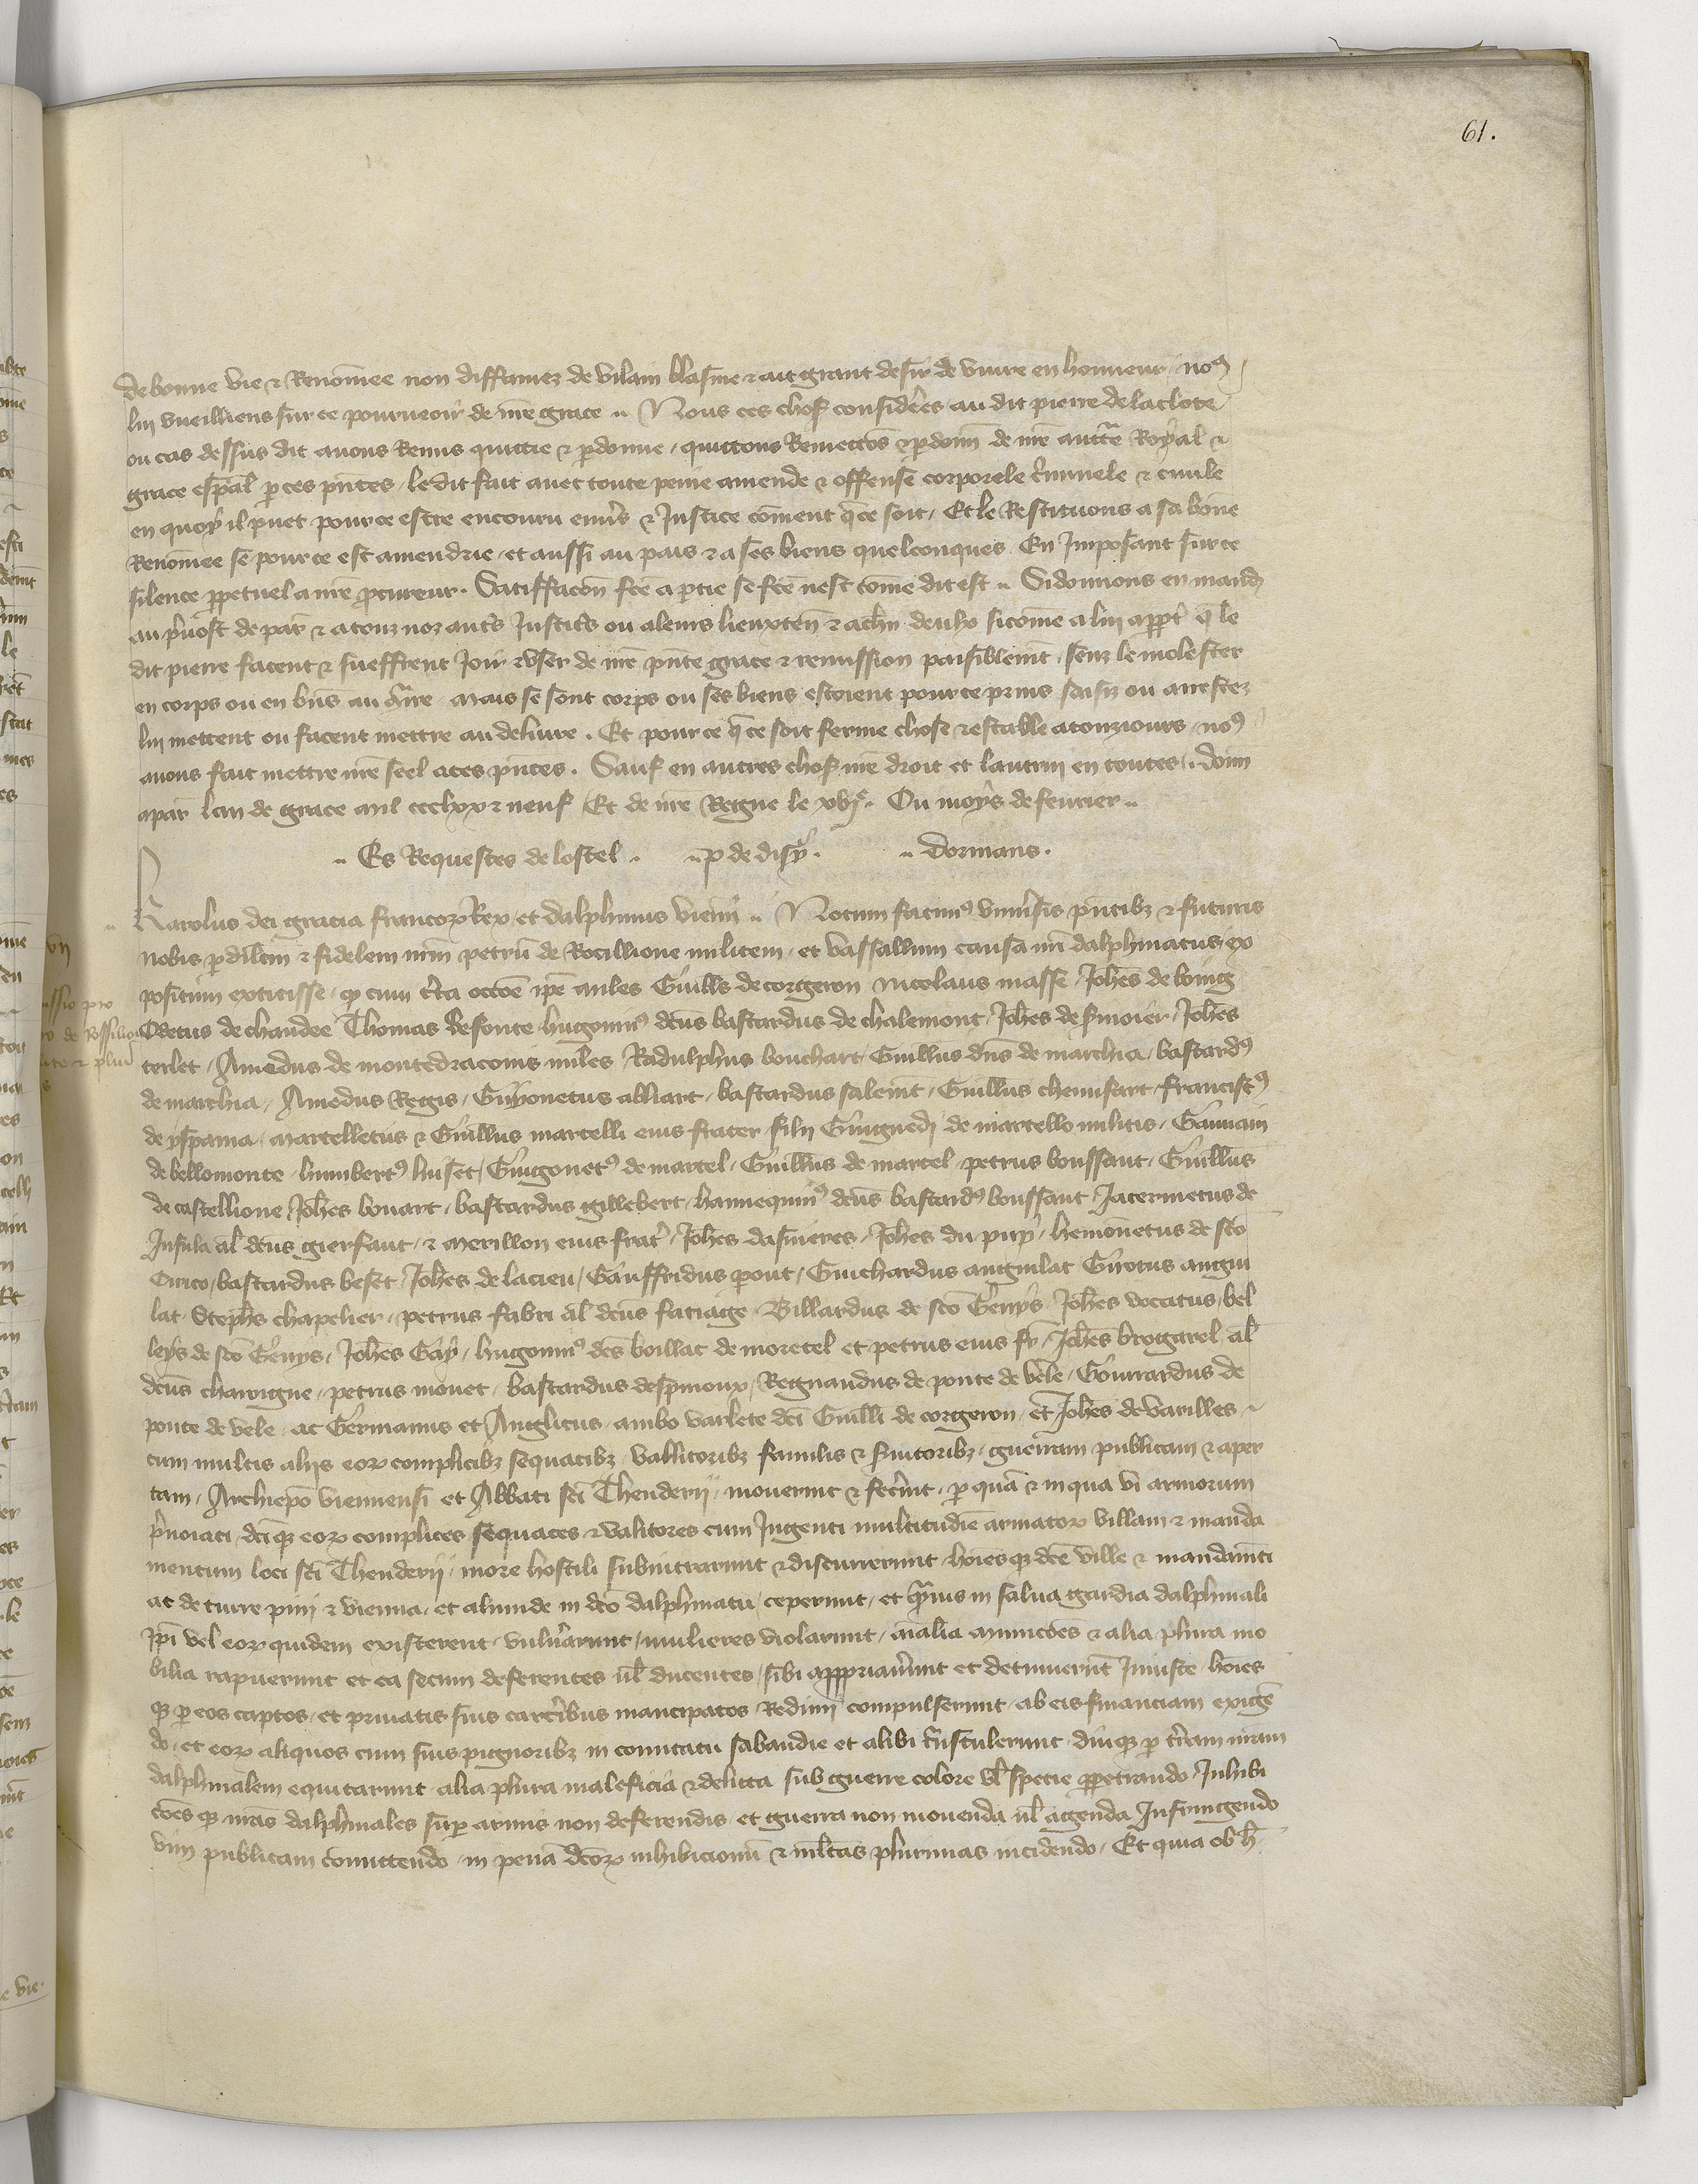 61.
de bonne vie & Renõmee non diffamez de vilain blasme & ait grant desir de vivre en honneur noꝰ
lui vueilliens sur ce pourveoir de nrẽ grace .. Nous ces choses considerees au dit pierre de la clote
ou cas dessus dit avons Remis quittie & pdonne quittons Remettõs & pdonñ de nrẽ auctẽ Royal &
grace espãl p ces pñtes le dit fait avec toute peine amende & offense corporele criminele & civile
en quoy il puet pour ce estre encouru envs & Justice cõment q̃ ce soit, Et le Restituons a sa bõne
Renõmee se pour ce est amendrie et aussi au pais & a ses biens quelconques En Imposant sur ce
silence ppetuel a nrẽ pcureur. Satiffacõn fcẽ a ptie se fcẽ nest cõme dit est .. Si donnons en mand
au pvost de par & a touz noz autˢ Justicˢ ou a leurs lieuxteñ & a chñ deulx si cõme a lui apptˢ q̃ le
dit pierre facent & sueffrent Joir & user de nrẽ pñte grace & remission paisiblemt senz le molester
en corps ou en bñs au ctˢire mais se sont corps ou ses biens estoient pour ce prins saisiz ou arrestez
lui mettent ou facent mettre au delivre. Et pour ce q̃ ce soit ferme chose & estable a touzjours noꝰ
avons fait mettre nrẽ seel a ces pñtes. Sauf en autres choses nrẽ droit et lautrui en toutes. Donñ
a par lan de grace mil ccclxx & neuf Et de nrẽ Regne le xvjᵉ. Ou moys de fevrier ..
.. Es Requestes de lostel . .. p de disy . .. Dormans .
Karolus dei gracia francoꝝ Rex et dalphinus vienñ .. Notum facimꝰ univsis pñtibz & futuris
nobis p dilcm & fidelem nrm petrũ de Rocillione militem et vassallum causa nri dalphinatus ex
positum extitisse q cum ctˢa occõe ipẽ miles Guills de corgeron Nicolaus masse Johẽs de buing
Odetus de chandee Thomas de fonte hugoninꝰ dcũs bastardus de chalemont Johẽs de smoier Johẽs
terlet Amedus de montedraconis miles Radulphus bouchart Guillus dñs de marchia bastardꝰ
de marchia Amedus Regis Guyonetus alliart bastardus salemt Guillus chemisart franciscꝰ
de yspania martelletus & Guillus martelli eius frater filii Guignedi de martello militis Gauvain
de bellomonte humbertꝰ huset Guigonetꝰ de martel Guillus de martel petrus boussaut Guillus
de castellione Johẽs bouart bastardus gillebert hannequinꝰ dcũs bastardꝰ boussaut Jacermetus de
Insula al dcũs gierfaut & merillon eius fratˢ Johẽs dasnieres Johẽs du puy hemonetus de sco
Cirico bastardus beset Johẽs de lacieu Gauffridus pout Guichardus anguilat Girotus angui
lat Stephs chapelier petrus fabri al dcũs fatiage Billardus de sco Genys Johẽs vocatus bel
leys de sco Genys Johẽs Gay hugoninꝰ dcs boillat de moretel et petrus eius fr Johẽs brogarel al
dcũs charoigne petrus monet bastardus despinoux Regnaudus de ponte de vele Gourrardus de
ponte de vele ac Germanus et Anglicus ambo varlete dci Guilli de corgeron et Johẽs de varilles
cum multis aliis eoꝝ complicibz sequacibz vallitoribz familis & svitoribz guerram publicam & aper
tam Archiepo viennensi et Abbati sci Thenderii moverint & fecint p quã & in qua vi armorum
pnoiati dciqz eoꝝ complices sequaces & valitores cum Ingenti multitudie armatoꝝ villam & manda
mentum loci sci Thenderii more hostili subintrarunt & discurrerunt hoiesqz dce ville & mandamti
ac de turre pini & vienna et aliunde in dco dalphinatu ceperunt et pˢius in salva gardia dalphinali
ipi vel eoꝝ quidem existerent vulnarunt mulieres violarunt aialia municões & alia plura mo
bilia rapuerunt et ea secum deferentes ul ducentes sibi appropriavunt et detinuerũt Iniuste hoies
qz p eos captos et privatis suis carcibus mancipatos Redimi compulserunt ab eis financiam exigẽ
do et eoꝝ aliquos cum suis pignoribz in comitatu sabaudie et alibi tˢnstulerunt diuqz p tram nrãm
dalphinalem equitarunt alia plura maleficia & delicta sub guerre colore ul specie ppetrando Inhibi
cões qz nrãs dalphinales sup armis non deferendis et guerra non movenda ul agenda Infringendo
vim publicam cõmittendo in penã dcoꝝ inhibicionũ & mltas plurimas incidendo Et quia ob h